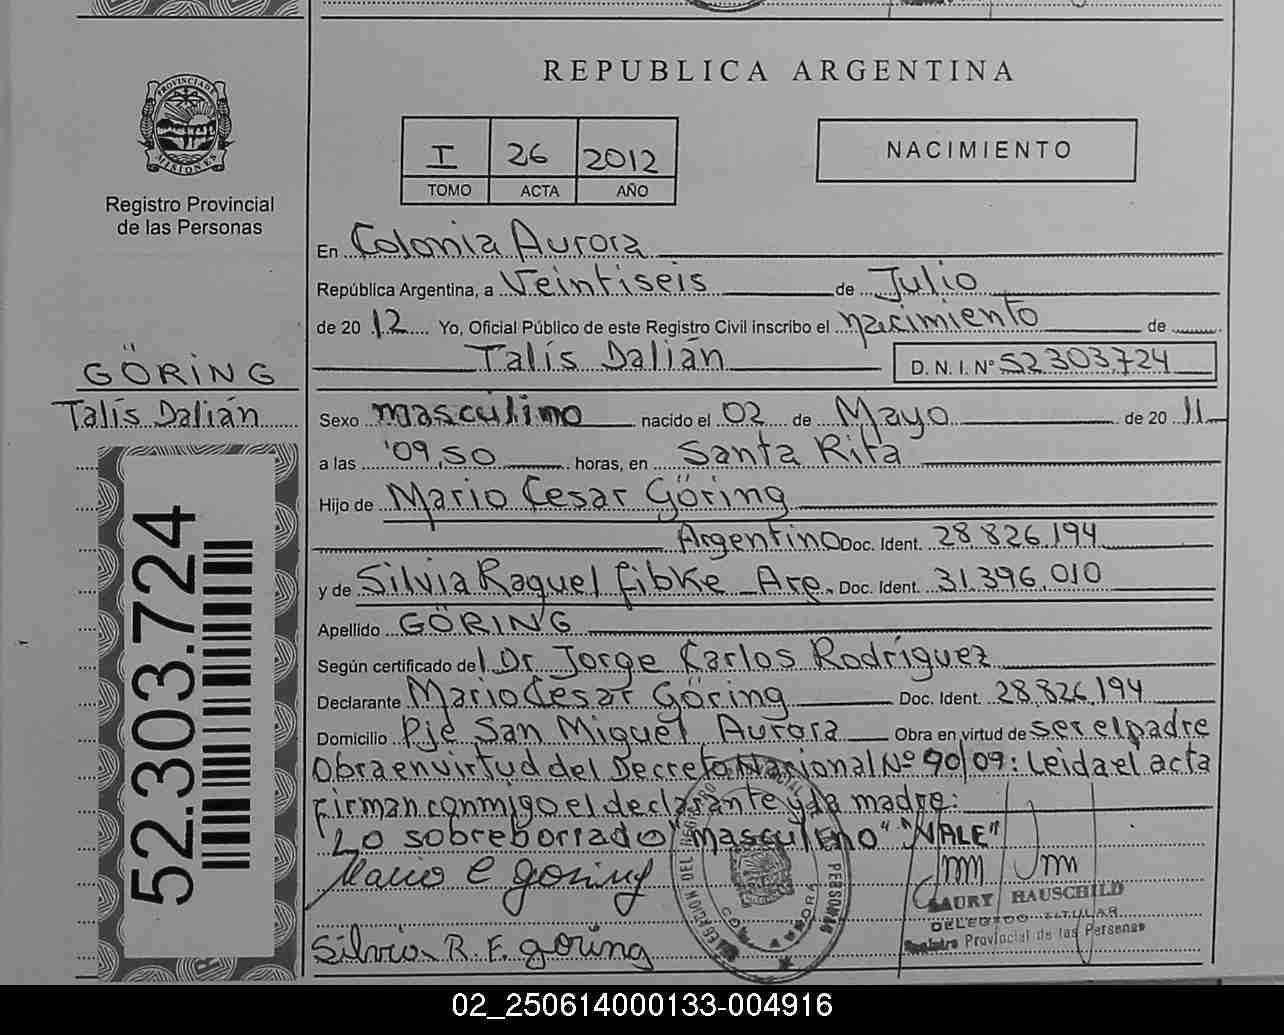 REPUBLICA ARGENTINA
PROVINCIA DE MISIONES
Registro Provincial
de las Personas
I 26 2012
TOMO ACTA AÑO
NACIMIENTO
En Colonia Aurora
República Argentina, a Veintiseis de Julio
de 2012 Yo, Oficial Público de este Registro Civil inscribo el nacimiento de
Talís Dalián D. N. I. Nº 52.303.724
GÖRING
Talís Dalián
52.303.724
Sexo masculino nacido el 02 de Mayo de 2011
a las 09,50 horas, en Santa Rita
Hijo de Mario Cesar Göring
Argentino Doc. Ident. 28.826.194
y de Silvia Raquel Fibke Arg. Doc. Ident. 31.396.010
Apellido GÖRING
Según certificado del Dr Jorge Carlos Rodríguez
Declarante Mario Cesar Göring Doc. Ident. 28.826.194
Domicilio Pje San Miguel Aurora Obra en virtud de ser el padre
Obra en virtud del Decreto Nacional Nº 90/09: Leida el acta
firman conmigo el declarante y la madre:
"Lo sobreborrado "masculino" "VALE"
Mario C Göring
Silvia R. F. göring
LAURY HAUSCHILD
DELEGADO TITULAR
Registro Provincial de las Personas
02_250614000133-004916